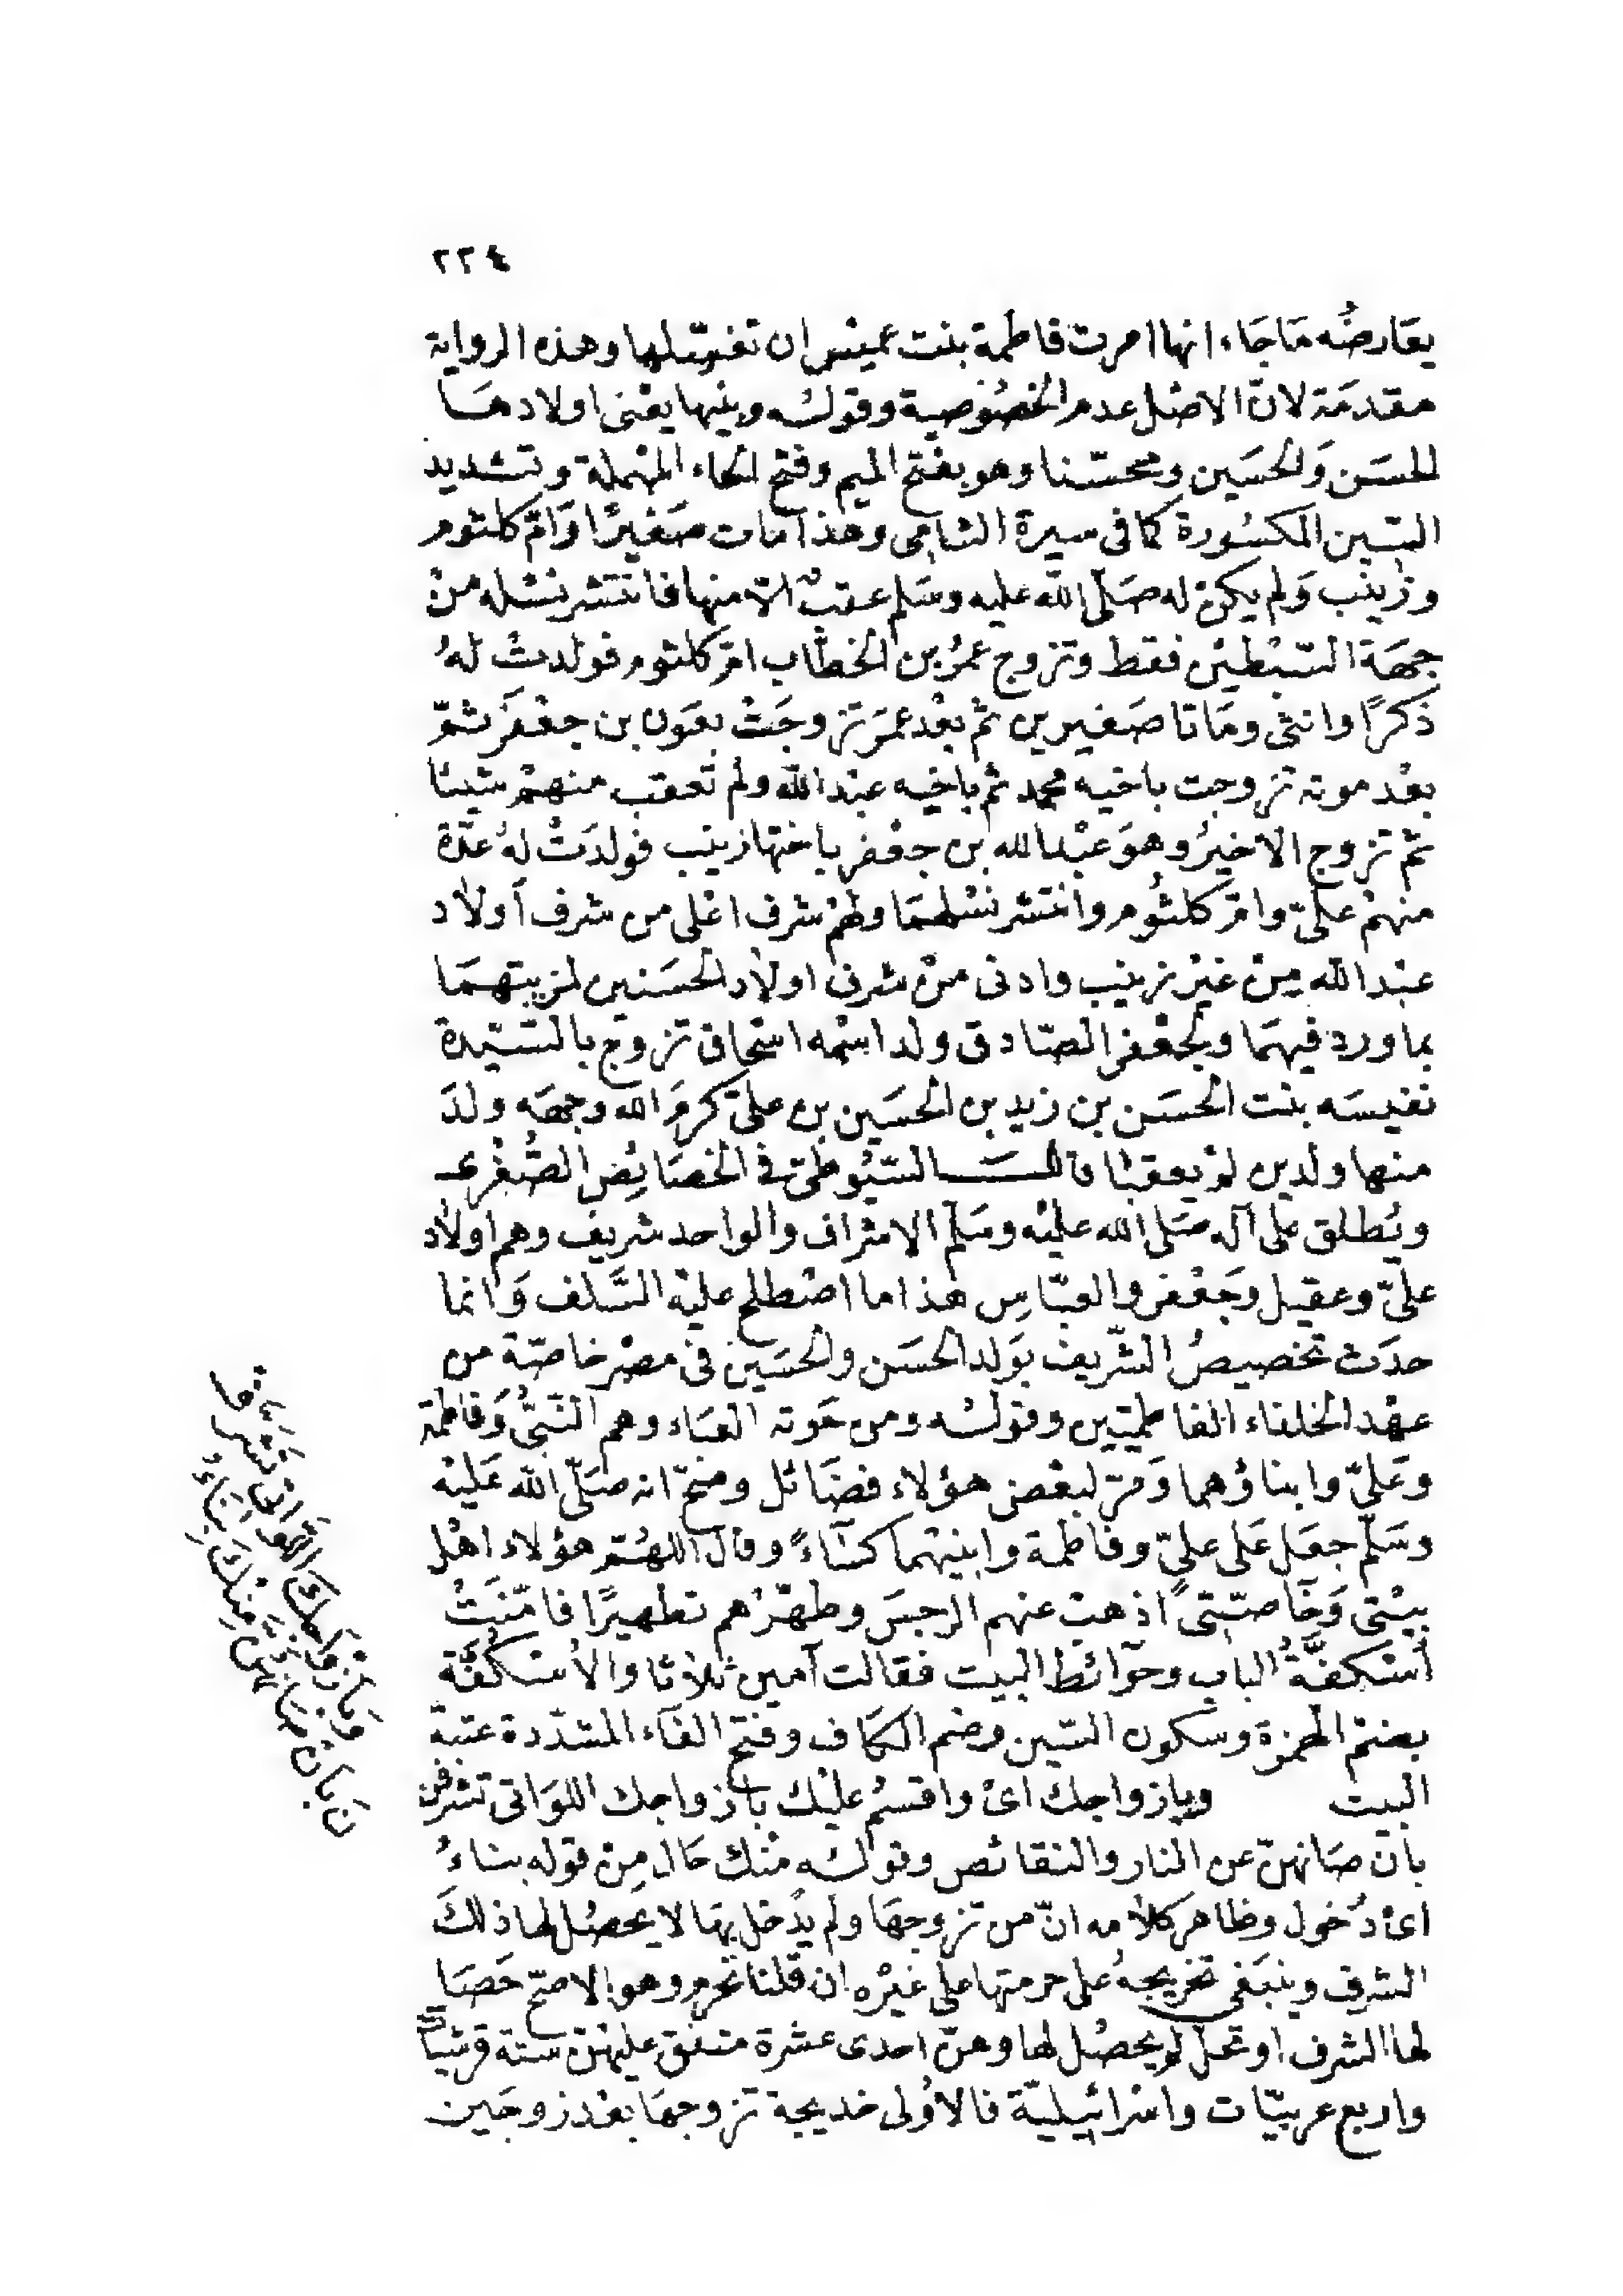 ٢٢٤
يعَارضُه مَاجَاء انها امرت فاطمة بنت عميْس ان تغسّلها وهذه الرواية
مقدمَة لانّ الاصْل عدم الخصُوصية وقولـه وبنيها يعْنى اولادهَـا
الحسَن وَالحسَين ومحسّنا وهو بفتح الميم وفتح الحاء المهْملة وتشديد
السّين المكسُورة كما فى سيرة الشامى وهذا مات صَغيرًا وَامّ كلثوم
وزينب وَلم يكنْ له صَلّى الله عليه وسَلم عقبٌ الّا منها فانتشر نسْله منْ
جهَة السّبْطيْن فقط وتزوج عمرُ بن الخطّاب امّ كلثوم فولدتْ لهُ
ذكرًا وانثى ومَاتا صَغيرين ثم بعْد عمَر تزوجَتْ بعَون بن جعْفَر ثمّ
بعْد موته تزوجت باخيه محمد ثم باخيه عبْد الله ولم تعقب منهمْ شيئا
ثم تزوج الاخيرُ وهوَ عبْد الله بن جعْفر باختها زينب فولدَتْ لهُ عدّة
منهمْ علىّ وامّ كلثُوم وانتشر نسْلهمَا ولهمْ شرف اعْلى من شرف أولاد
عبْد الله مِنْ غيْر زينب وادنى منْ شرف اولاد الحسَنين لمزيتهمَا
بما ورد فيهمَا ولجعْفر الصّادق ولد اسْمه اسْحاق تزوج بالسّيّدة
نفيسَه بنت الحسَن بن زيد بن الحسَين بن علىّ كرمَ الله وجهَه ولدَ
منها ولدين لمْ يعقبَا قالـــ السّيُوطىّ فى الخصَائِص الصُّغْرى
ويُطلق على آله صَلى الله عليْه وسَلّم الاشراف والواحد شريف وهم اولاد
علىّ وعقيل وجَعْفر والعبّاسِ هذا ما اصْطلح عليْه السَّلف وَانما
حدَث تخصيصُ الشّريف بوَلد الحسَن والحسَين فى مصْر خاصّة من
عهْد الخلفاء الفاطميّين وقولـه ومن حَوته العبَاء وهم النّبىُّ وَفاطمة
وعَلىّ وابناؤهما وَمرّ لبعْض هؤلاء فضَائل وصَحّ انه صَلّى الله عَليْه
وسَلّم جعَل عَلى علىّ وفاطمة وابنيْهما كسَاءً وقال اللهُمّ هؤلاء اهْل
بيْتى وَخَاصّتى اذهبْ عنهم الرجسَ وطهّرْهم تطهيرًا فامّنَتْ
اُسْكفَّةُ الباب وحوَائط البيت فقالت آمين ثلاثا والاُسْكُفَّة
بضم الهمزة وسكون السّين وضم الكاف وفتح الفآء المشدّدة عتبة
البيت وبازواجك اىْ واقسمُ عليْك بازواجك اللوَاتى تشرّفن
بان صَانهنّ عن النار والنقائص وقولـه منْك حَال مِنْ قوله بناءُ
اىْ دُخول وظاهر كلامه انّ من تزوجهَا ولم يدْخل بهَا لا يحصُل لها ذلكَ
الشرف وينبَغى تخريجهُ على حرمتها على غيْره ان قلنا تحرم وهو الاصحّ حَصَا
لها الشرف او تحلّ لم يحصُل لها وهنّ احدى عشرة متفق عليهنّ ستة قرشيا
واربع عربيّات واسْرائيليّة فالاُولى خديجة تزوجهَا بعْد زوجَين
وَبازْوَاجكَ اللَّوَاتى تَشَرَّفْـ
نَ بانْ صَانَهُنَّ مِنْكَ بِنَاءُ